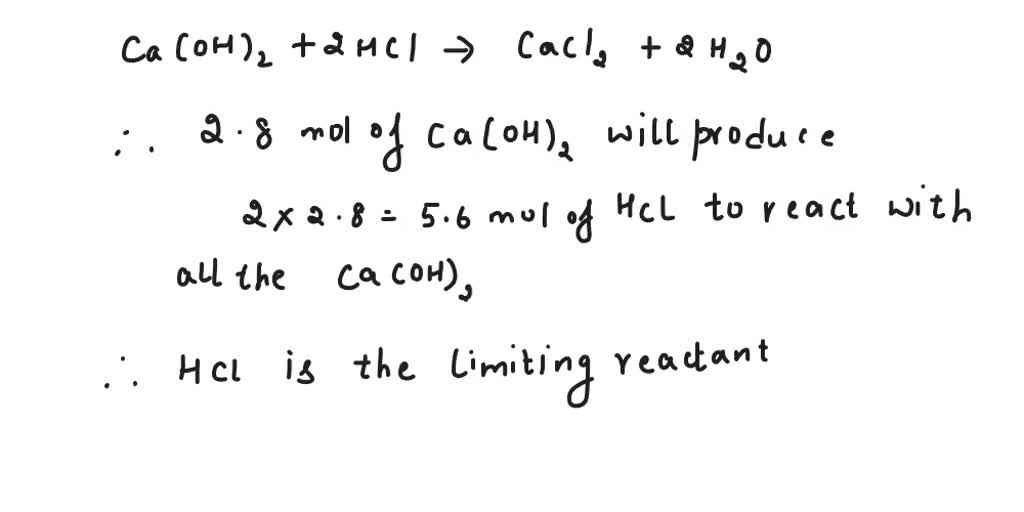 Ca(OH)₂ + 2HCl → CaCl₂ + 2H₂O
∴ 2.8 mol of Ca(OH)₂ will produce
2 x 2.8 = 5.6 mol of HCL to react with
all the Ca(OH)₂
∴ HCl is the limiting reactant